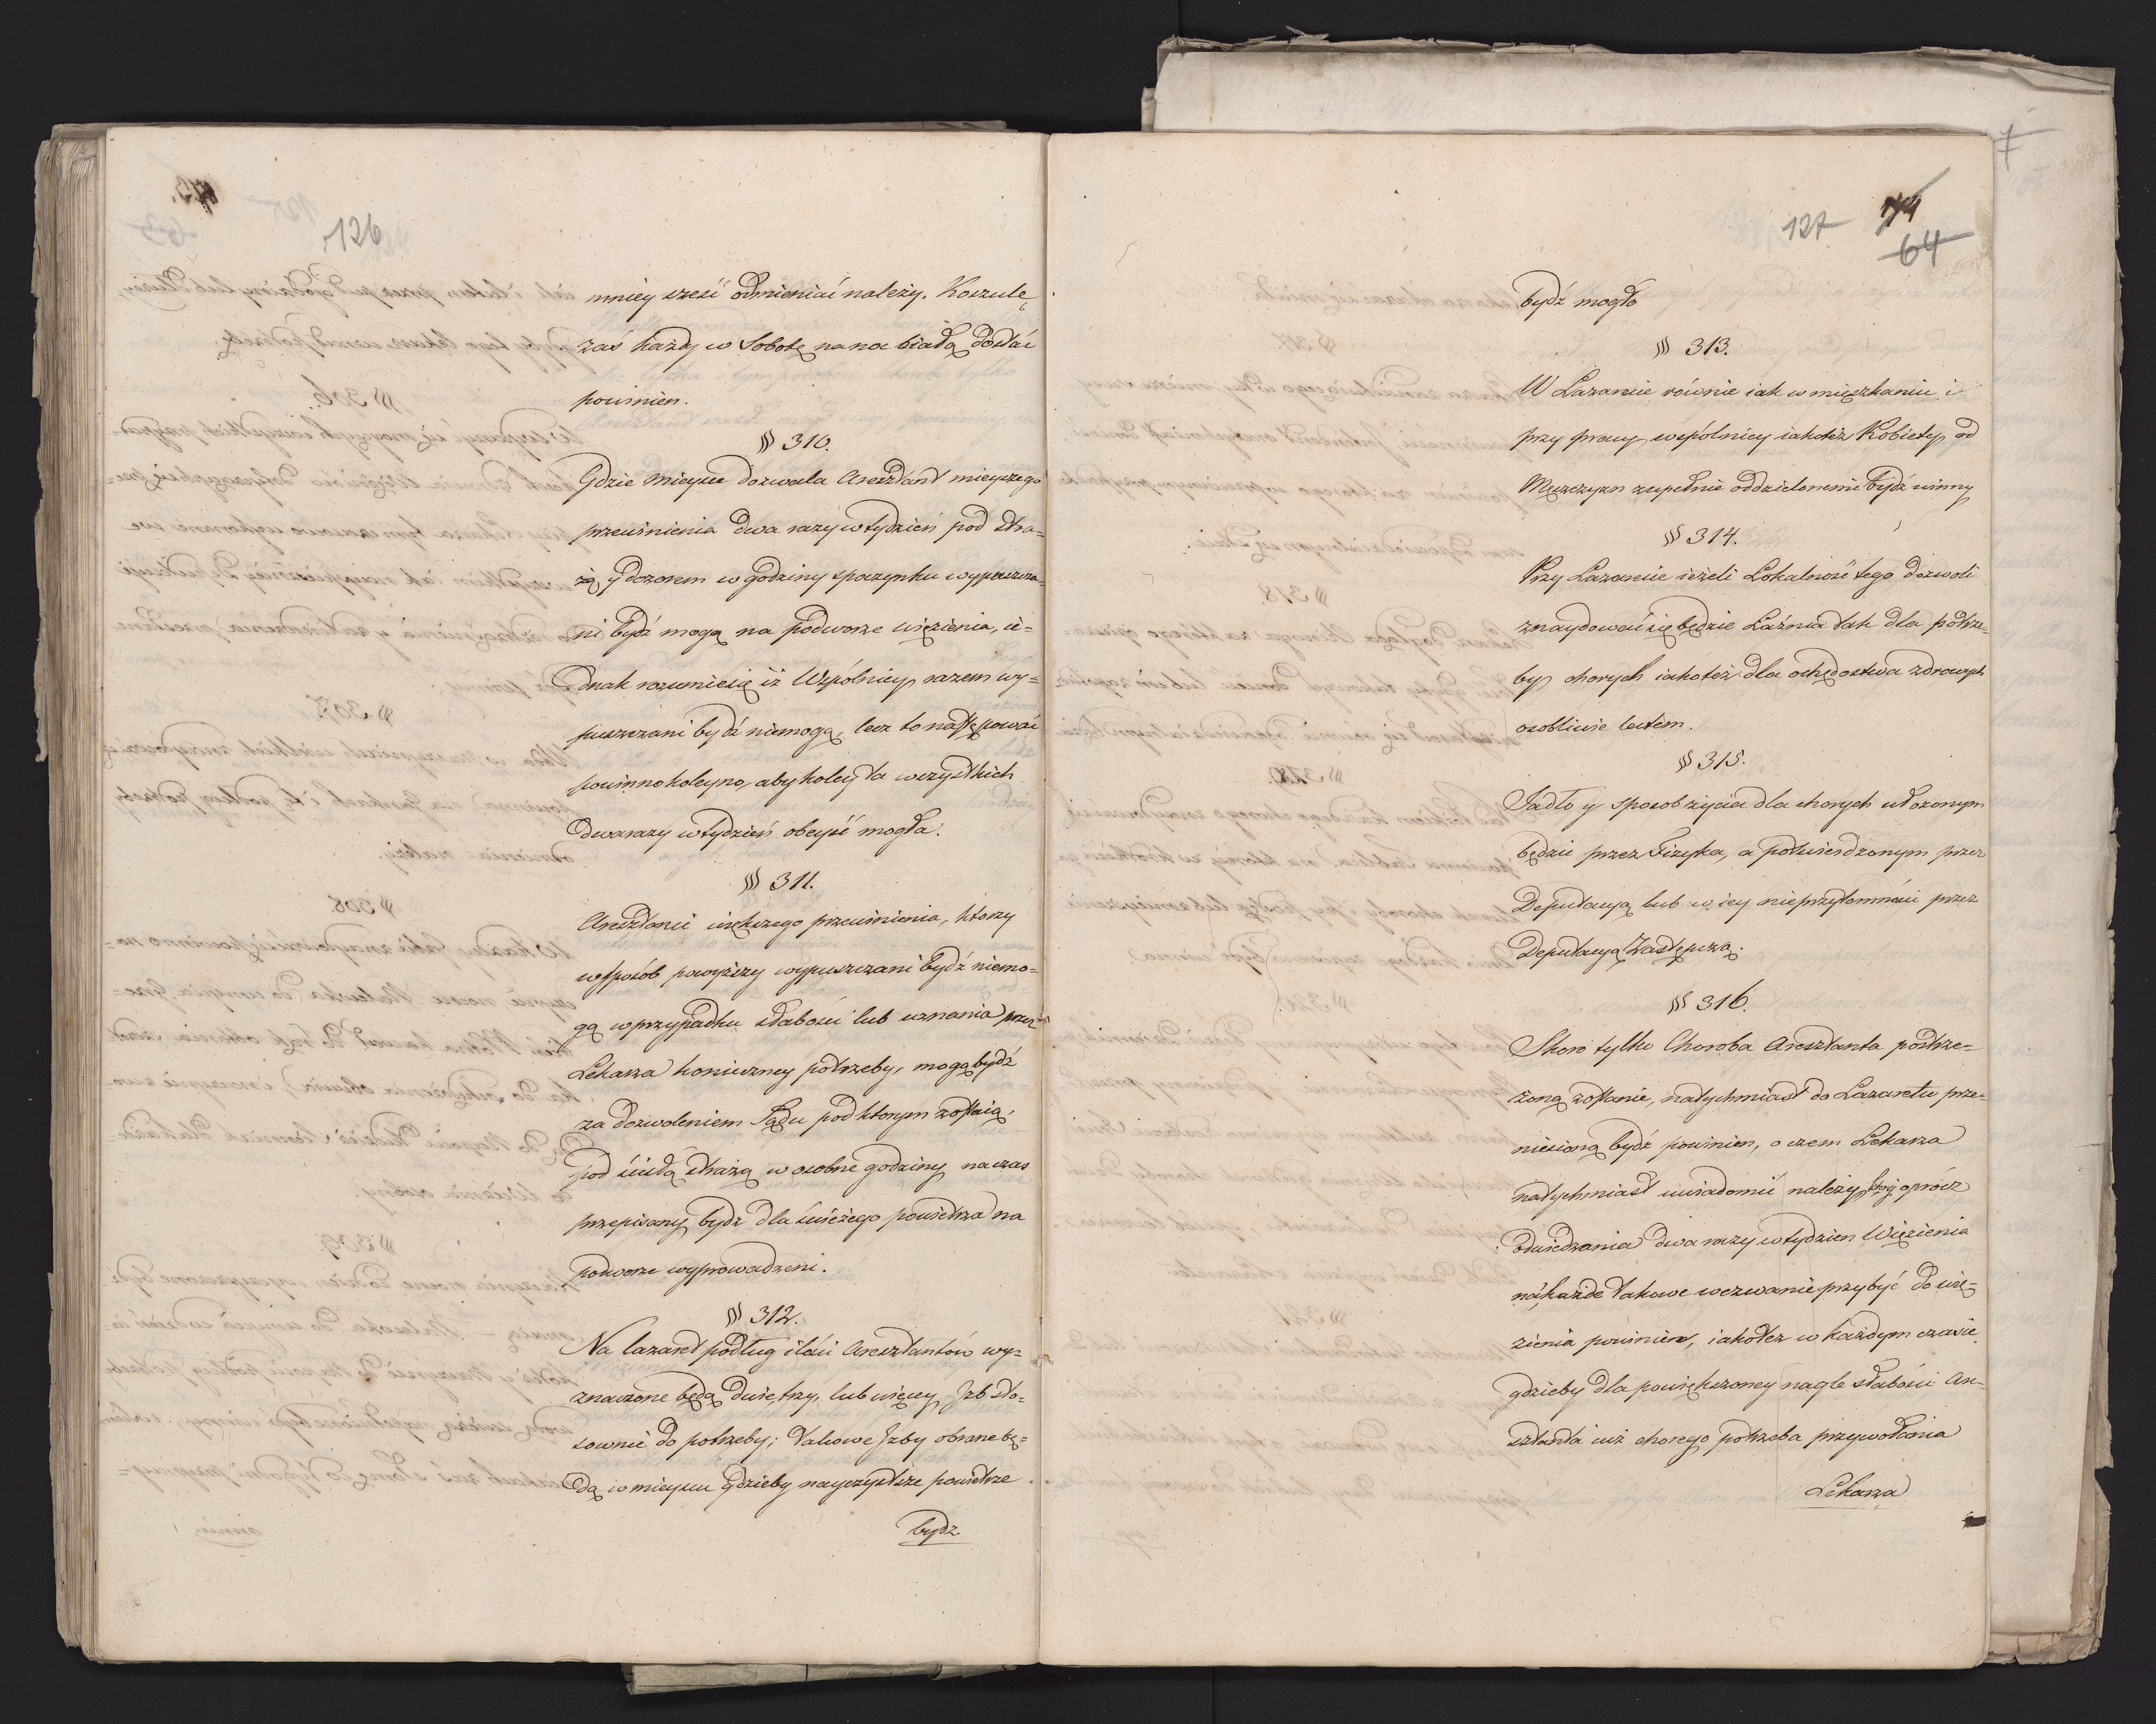 126
mniey sześć odmieniać należy. Koszulę
zaś każdy w Sobotę na noc białą dostać
powinien.
§ 310.
Gdzie mieysce dozwala Aresztant mieyszego
przewinienia dwa razy w tydzień pod stra=
żą, y dozorem w godziny spoczynku wypuszcza=
ni bydź mogą na podworze więzienia, ie=
dnak rozumie się iż Wspólnicy razem wy=
puszczani bydź niemogą, lecz to następować
powinno koleyno, aby koley ta wszystkich
dwa razy w tydzień obeyść mogła.
§ 311.
Aresztanci większego przewinienia, ktorzy
w sposób powyższy wypuszczani bydź niemo=
gą w przypadku słabości lub uznania przez
Lekarza konieczney potrzeby, mogą bydź
za dozwoleniem Sądu pod ktorym zostaią,
pod ścisłą strażą w osobne godziny na czas
przepisany bydź dla świeżego powietrza na
podworze wyprowadzeni.
§ 312.
Na lazaret podług ilości Aresztantów wy=
znaczone będą dwie, trzy, lub więcey Izb sto=
sownie do potrzeby; takowe Izby obrane bę=
dą w mieyscu gdzieby nayczystsze powietrze
bydz
127
64
bydź mogło
§ 313.
W Lazarecie równie iak w mięszkaniu i
przy pracy, wspólnicy iakoteż Kobiety od
Męszczyzn zupełnie oddzielonemi bydź winny
§ 314.
Przy Lazarecie ieżeli Lokalność tego dozwoli
znaydować się będzie Łaźnia tak dla potrze=
by chorych iakoteż dla ochędostwa zdrowych
osobliwie latem.
§ 315.
Jadło y sposob życia dla chorych ułożonym
będzie przez Fizyka, a potwierdzonym przez
Deputacyą lub w iey nieprzytomności przez
Deputacyą Zastępczą.
§ 316.
Skoro tylko Choroba Aresztanta postrze=
żoną zostanie, natychmiast do Lazaretu prze=
niesioną bydź powinien, o czem Lekarza
natychmiast uwiadomić należy, który oprócz
odwiedzania dwa razy w tydzien Więzienia
na każde takowe wezwanie przybyć do wię=
zienia powinien, iakoteż w każdym czasie
gdzieby dla powiększoney nagle słabości Are=
sztanta iuż chorego potrzeba przywołania
Lekarza